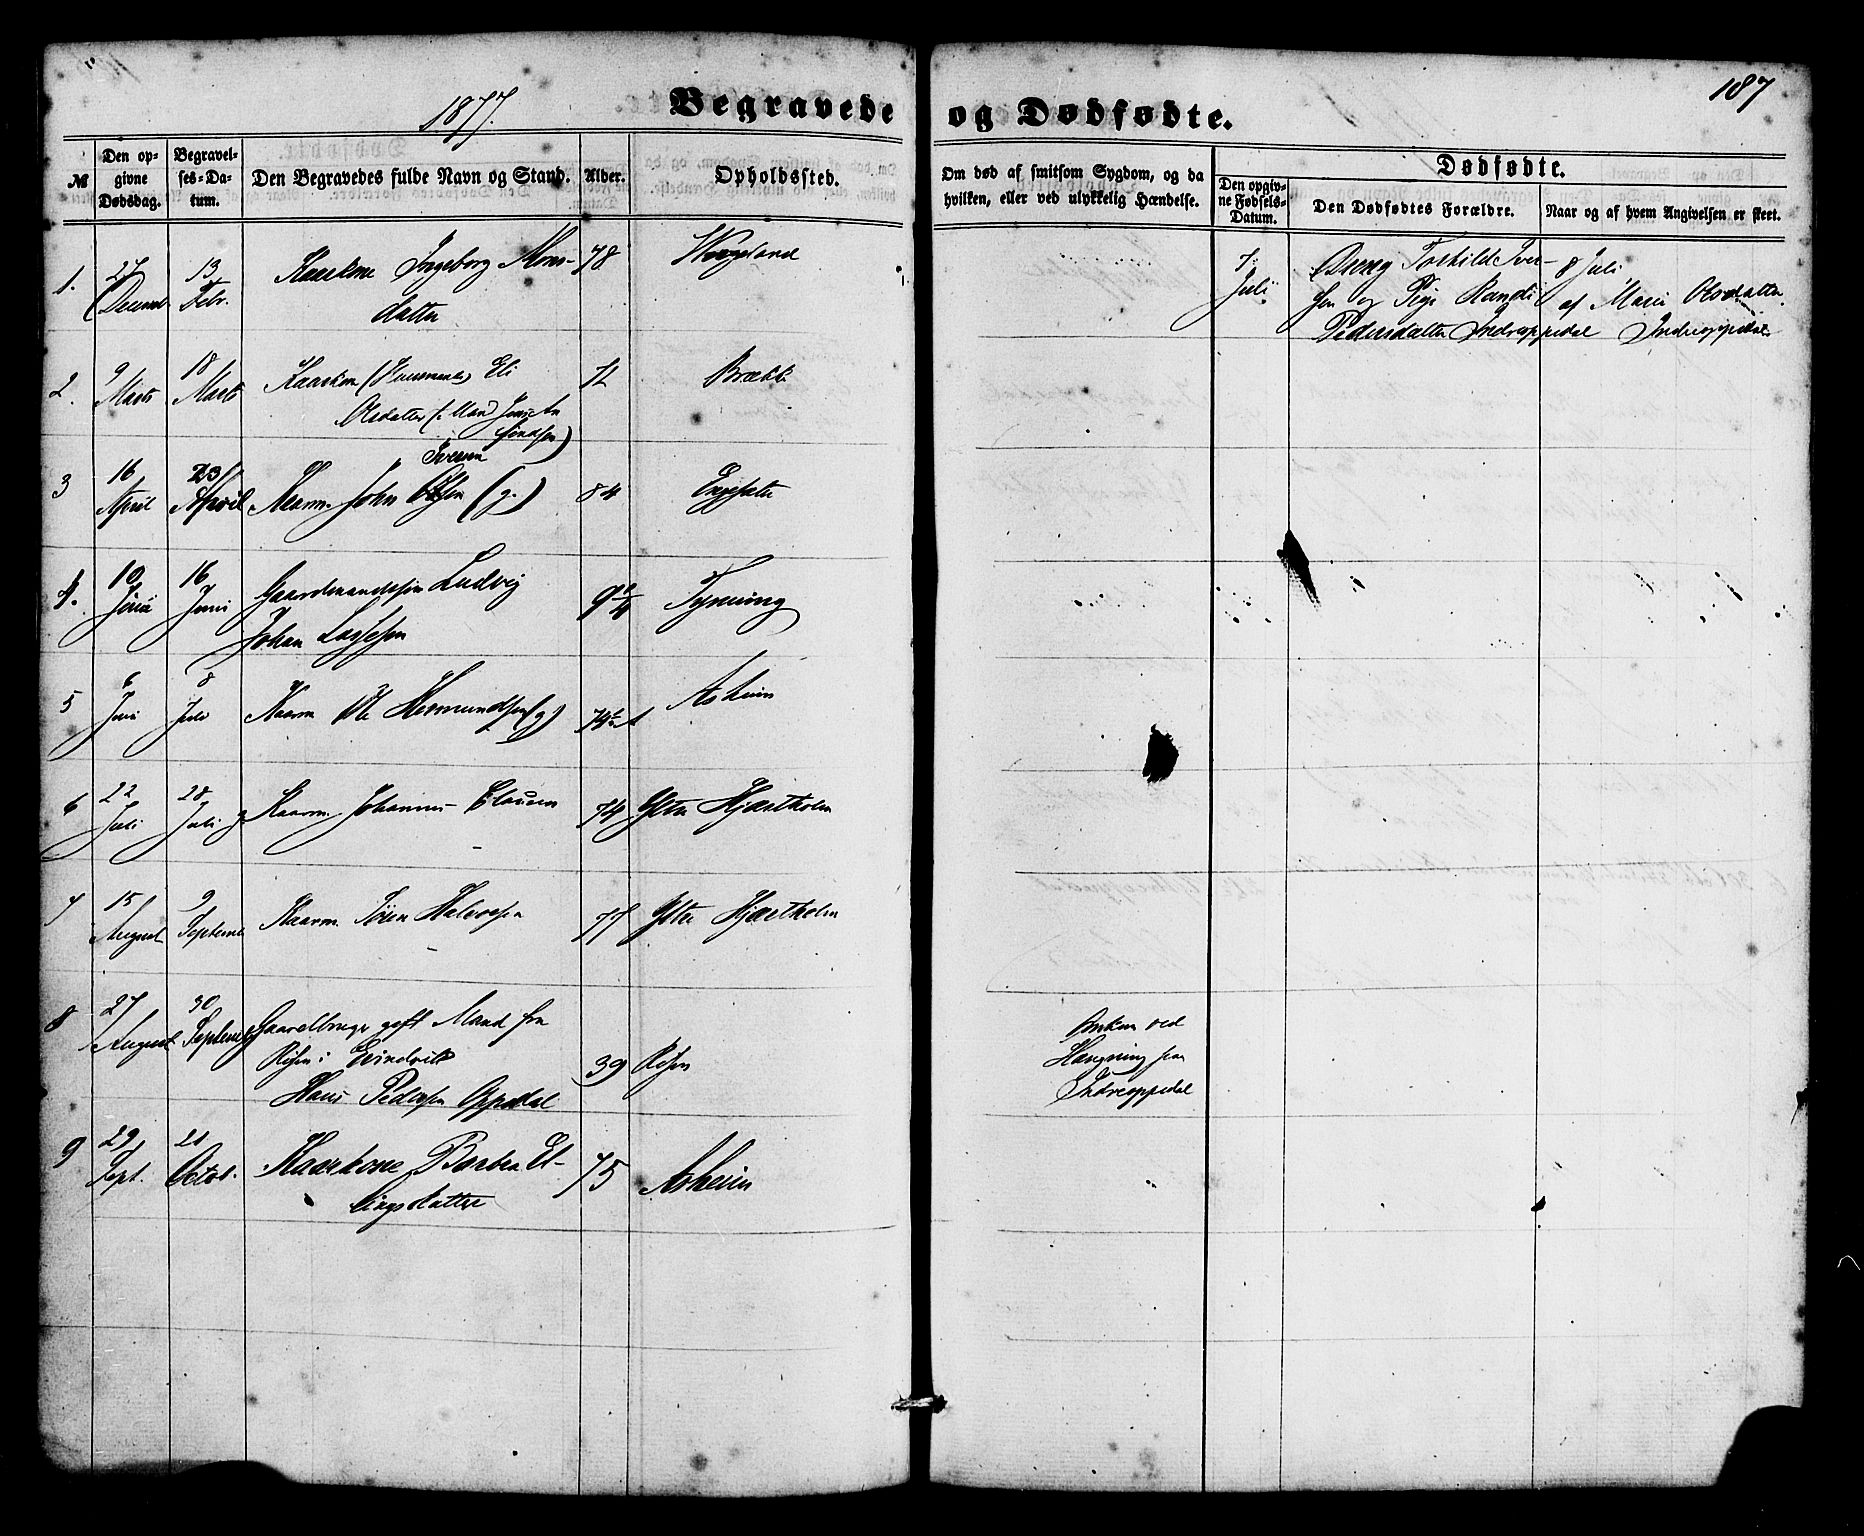 187
1877.
Begravede og Dødfødte.
№
Den opgivne Dødsdag.
Begravelses-Datum.
Den Begravedes fulde Navn og Stand.
Alder.
Opholdssted.
Om død af smitsom Sygdom, og da hvilken, eller ved ulykkelig Hændelse.
Dødfødte.
Den opgivne Fødsels-Datum.
Den Dødfødtes Forældre.
Naar og af hvem Angivelsen er skeet.
1. 27 Decemb 13 Febr. Kaarkone Ingeborg Mons- 78
datter
7 Juli Torkild Iver- 8 Juli
sen og Pige Randi af Marie Olsdatter
Pedersdatter Indreoppedal Indreoppedal
2. 9 Marts 18 Marts Kaarkon Eli Brække
Olsdatter
3 16 April 23 April Kaarm. John Iversen (g.) 84 Engesæter
4. 10 Juni 16 Juni Gaardmandssøn Ludvig
Johan Lassesen
5 6 Juni 8 Juli Kaarm Ole Hermundsen (g) Asheim
6 22 Juli 28 Juli Kaarm. Johannes Clausen 74 Ytre Hjartholm
7 15 August 9 Septemb Kaarm. Sören Halvorsen 77 Ytre Hjartholm
8 27 August 30 Septemb Gaardbruger gift Mand fra
i Evindvik 39
Hans Pedersen Oppedal
ved
Hængning paa
Indreoppedal
9 29 Sept. 21 Octob. Kaarkone Barbra El- 75 Asheim
lingsdatter